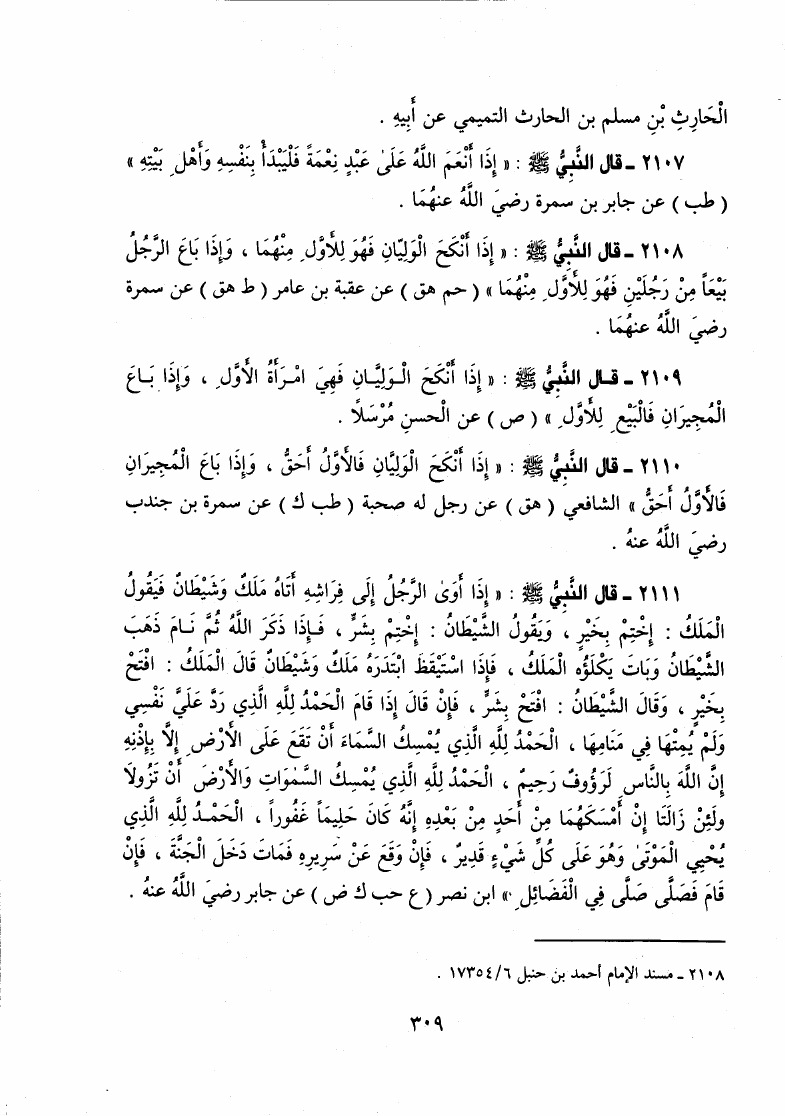 الْحَارِثِ بْنِ مسلم بن الحارث التميمي عن أَبِيهِ .
٢١٠٧ ـ قال النَّبِيُّ ﷺ : « إِذَا أَنْعَمَ اللَّهُ عَلَى عَبْدٍ نِعْمَةً فَلْيَبْدَأْ بِنَفْسِهِ وَأَهْلِ بَيْتِهِ »
( طب ) عن جابر بن سمرة رضيَ اللَّهُ عنهُمَا .
٢١٠٨ ـ قال النَّبِيُّ ﷺ : « إِذَا أَنْكَحَ الْوَلِيَّانِ فَهُوَ لِلأَوَّلِ مِنْهُمَا ، وَإِذَا بَاعَ الرَّجُلُ
بَيْعاً مِنْ رَجُلَيْنِ فَهُوَ لِلأَوَّلِ مِنْهُمَا » ( حم هق ) عن عقبة بن عامر ( ط هق ) عن سمرة
رضيَ اللَّهُ عنهُمَا .
٢١٠٩ ـ قـال النَّبِيُّ ﷺ : « إِذَا أَنْكَحَ الْـوَلِيَّـانِ فَهِيَ امْـرَأَةُ الأَوَّلِ ، وَإِذَا بَـاعَ
الْمُجِيرَانِ فَالْبَيْعِ لِلأَوَّلِ » ( ص ) عن الْحسنِ مُرْسَلاً .
٢١١٠ ـ قال النَّبِيُّ ﷺ : « إِذَا أَنْكَحَ الْوَلِيَّانِ فَالأَوَّلُ أَحَقُّ ، وَإِذَا بَاعَ الْمُجِيرَانِ
فَالأَوَّلُ أَحَقُّ » الشافعي ( هق ) عن رجل له صحبة ( طب ك ) عن سمرة بن جندب
رضيَ اللَّهُ عنهُ .
٢١١١ ـ قال النَّبِيُّ ﷺ : « إِذَا أَوَىٰ الرَّجُلُ إِلَى فِرَاشِهِ أَتَاهُ مَلَكٌ وَشَيْطَانٌ فَيَقُولُ
الْمَلَكُ : إِخْتِمْ بِخَيْرٍ ، وَيَقُولُ الشَّيْطَانُ : إِخْتِمْ بِشَرٍّ ، فَـإِذَا ذَكَرَ اللَّهُ ثُمَّ نَـامَ ذَهَبَ
الشَّيْطَانُ وَبَاتَ يَكْلَؤُه الْمَلَكُ ، فَإِذَا اسْتَيْقَظَ ابْتَدَرَهُ مَلَكٌ وَشَيْطَانٌ قَالَ الْمَلَكُ : افْتَحْ
بِخَيْرٍ ، وَقَالَ الشَّيْطَانُ : افْتَحْ بِشَرٍّ ، فَإِنْ قَالَ إِذَا قَامَ الْحَمْدُ لِلَّهِ الَّذِي رَدَّ عَلَيَّ نَفْسِي
وَلَمْ يُمِتْهَا فِي مَنَامِهَا ، الْحَمْدُ لِلَّهِ الَّذِي يُمْسِكُ السَّمَاءَ أَنْ تَقَعَ عَلَى الأَرْضِ إِلَّا بِإِذْنِهِ
إِنَّ اللَّهَ بِالنَّاسِ لَرَؤُوفٌ رَحِيمٌ ، الْحَمْدُ لِلَّهِ الَّذِي يُمْسِكُ السَّمٰوَاتِ وَالأَرْضَ أَنْ تَزُولَا
ولَئِنْ زَالَتَا إِنْ أَمْسَكَهُمَا مِنْ أَحَدٍ مِنْ بَعْدِهِ إِنَّهُ كَانَ حَلِيمَاً غَفُوراً ، الْحَمْـدُ لِلَّهِ الَّذِي
يُحْيِي الْمَوْتَىٰ وَهُوَ عَلَى كُلِّ شَيْءٍ قَدِيرٌ ، فَإِنْ وَقَعَ عَنْ سَرِيرِهِ فَمَاتَ دَخَلَ الْجَنَّةَ ، فَإِنْ
قَامَ فَصَلَّى صَلَّى فِي الْفَضَائِلِ » ابن نصر ( ع حب ك ض ) عن جابر رضيَ اللَّهُ عنهُ .
٢١٠٨ ـ مسند الإمام أحمد بن حنبل ٦/ ١٧٣٥٤ .
٣٠٩